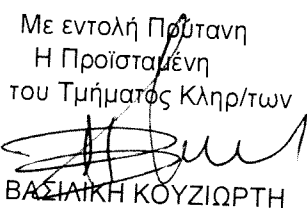 Με εντολή Πρύτανη
Η Προϊσταμένη
του Τμήματος Κληρ/των
ΒΑΣΙΛΙΚΗ ΚΟΥΖΙΩΡΤΗ